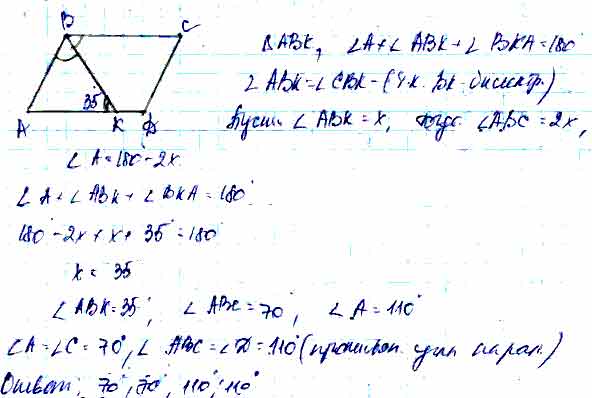 B C
A K D
35°
В ΔABK, ∠A + ∠ABK + ∠BKA = 180°
∠ABK = ∠CBK - (т.к. BK - биссектр.)
Пусть ∠ABK = x, тогда ∠ABC = 2x,
∠A = 180 - 2x
∠A + ∠ABK + ∠BKA = 180°
180° - 2x + x + 35° = 180°
x = 35
∠ABK = 35°, ∠ABC = 70°, ∠A = 110°
∠A = ∠C = 70°, ∠ABC = ∠D = 110° (противоп. углы парал.)
Ответ: 70°, 70°, 110°, 110°